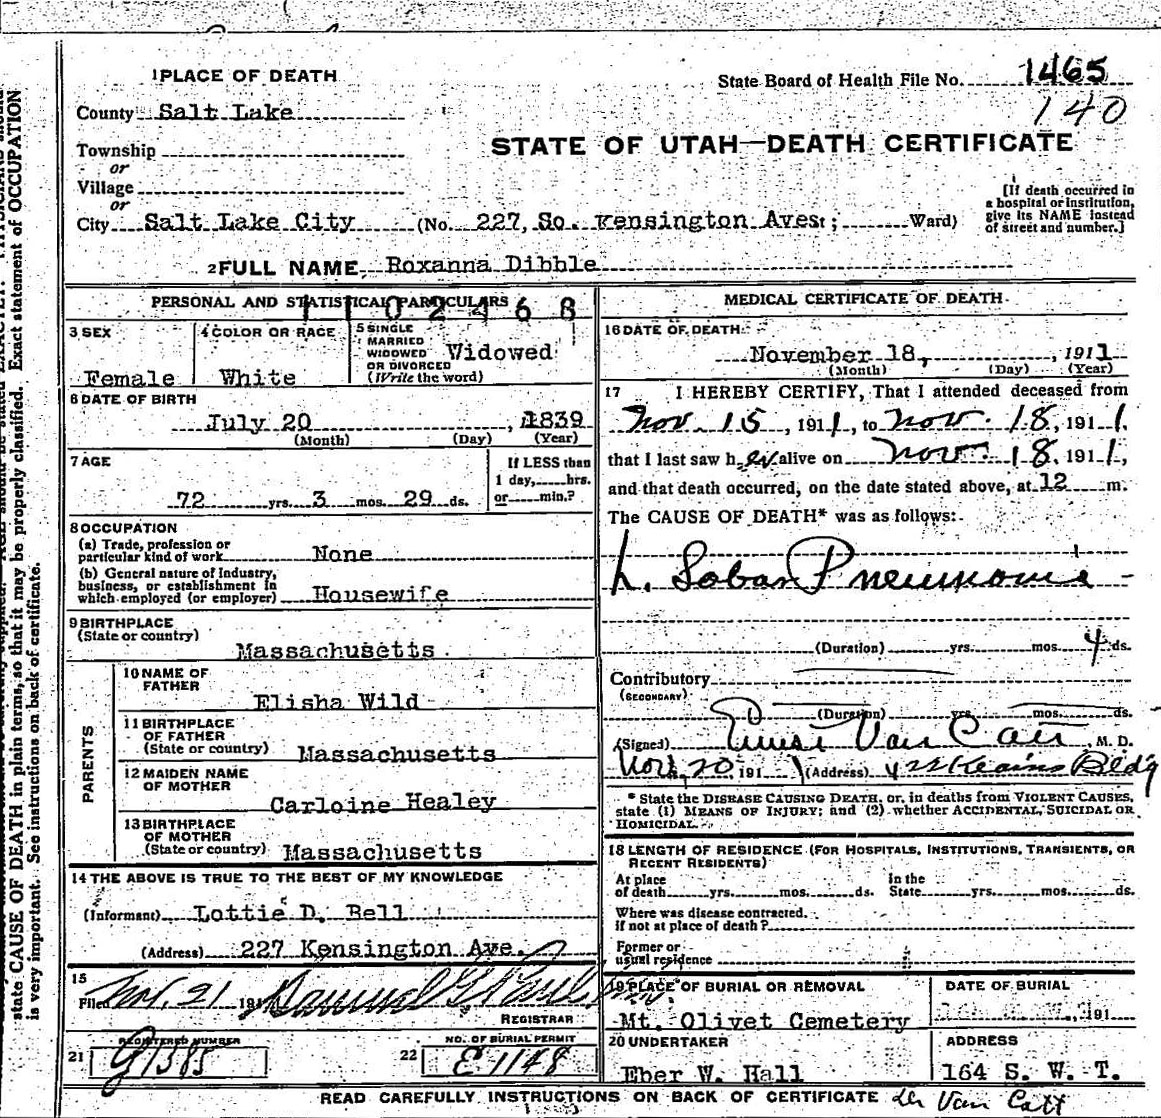 1 PLACE OF DEATH
State Board of Health File No. 1465
140
County Salt Lake
STATE OF UTAH—DEATH CERTIFICATE
Township
or
Village
or
City Salt Lake City (No. 227, So. Kensington Ave St; Ward)
[If death occurred in a hospital or institution, give its NAME instead of street and number.]
2 FULL NAME Roxanna Dibble
PERSONAL AND STATISTICAL PARTICULARS
1102468
3 SEX
Female
4 COLOR OR RACE
White
5 SINGLE
MARRIED
WIDOWED
OR DIVORCED
(Write the word)
Widowed
6 DATE OF BIRTH
July 20, 1839
(Month) (Day) (Year)
7 AGE
72 yrs. 3 mos. 29 ds.
If LESS than
1 day, hrs.
or min.?
8 OCCUPATION
(a) Trade, profession or
particular kind of work None
(b) General nature of Industry,
business, or establishment in
which employed (or employer) Housewife
9 BIRTHPLACE
(State or country)
Massachusetts
PARENTS
10 NAME OF
FATHER
Elisha Wild
11 BIRTHPLACE
OF FATHER
(State or country) Massachusetts
12 MAIDEN NAME
OF MOTHER
Carloine Healey
13 BIRTHPLACE
OF MOTHER
(State or country) Massachusetts
14 THE ABOVE IS TRUE TO THE BEST OF MY KNOWLEDGE
(Informant) Lottie D. Bell
(Address) 227 Kensington Ave.
15
Filed Nov. 21 191
REGISTRAR
21 REGISTERED NUMBER
G1385
22 NO. OF BURIAL PERMIT
E1148
MEDICAL CERTIFICATE OF DEATH
16 DATE OF DEATH
November 18, 1911
(Month) (Day) (Year)
17 I HEREBY CERTIFY, That I attended deceased from
Nov. 15, 1911, to Nov. 18, 1911,
that I last saw her alive on Nov. 18, 1911,
and that death occurred, on the date stated above, at 12 m.
The CAUSE OF DEATH* was as follows:
L. Lobar Pneumonia
(Duration) yrs. mos. 4 ds.
Contributory
(SECONDARY)
(Duration) yrs. mos. ds.
(Signed) Van Catt M. D.
Nov. 20, 191 (Address) Bldg
* State the DISEASE CAUSING DEATH, or, in deaths from VIOLENT CAUSES,
state (1) MEANS OF INJURY; and (2) whether ACCIDENTAL, SUICIDAL OR
HOMICIDAL.
18 LENGTH OF RESIDENCE (FOR HOSPITALS, INSTITUTIONS, TRANSIENTS, OR
RECENT RESIDENTS)
At place of death yrs. mos. ds. In the State yrs. mos. ds.
Where was disease contracted,
if not at place of death?
Former or
usual residence
19 PLACE OF BURIAL OR REMOVAL
Mt. Olivet Cemetery
DATE OF BURIAL
191
20 UNDERTAKER
Eber W. Hall
ADDRESS
164 S. W. T.
READ CAREFULLY INSTRUCTIONS ON BACK OF CERTIFICATE
Dr Van Catt
state CAUSE OF DEATH in plain terms, so that it may be properly classified. Exact statement of OCCUPATION
is very important. See instructions on back of certificate.